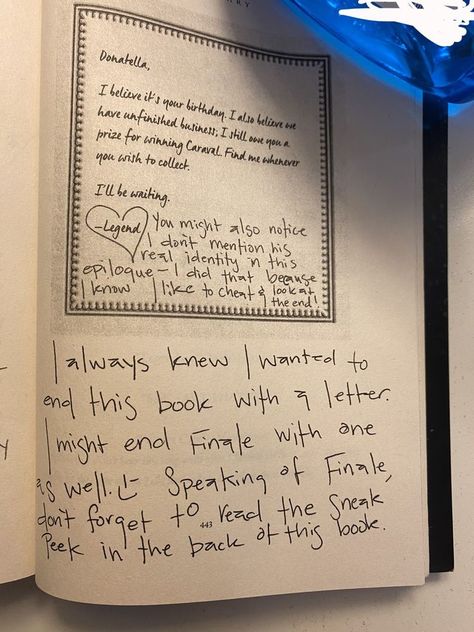 Donatella,
I believe it's your birthday. I also believe we
have unfinished business; I still owe you a
prize for winning Caraval. Find me whenever
you wish to collect.
I'll be waiting.
—Legend
You might also notice
I don't mention his
real identity in this
epilogue – I did that because
I know I like to cheat & look at
the end!
I always knew I wanted to
end this book with a letter.
I might end Finale with one
as well. Speaking of Finale,
don't forget to read the Sneak
443
Peek in the back of this book.